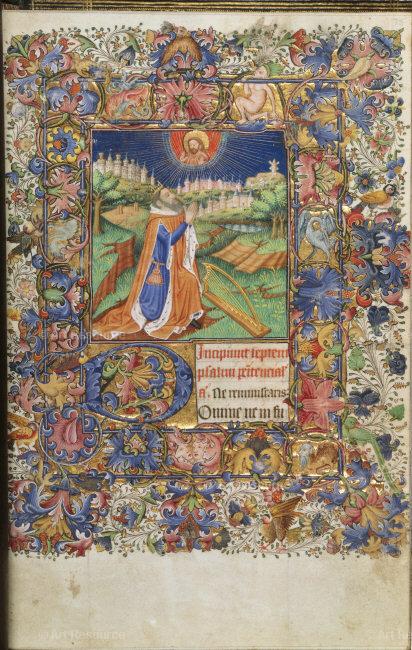 Incipiunt septem
psalmi penitenciales
a. Ne reminiscaris
Domine ne in fu
© Art Resource